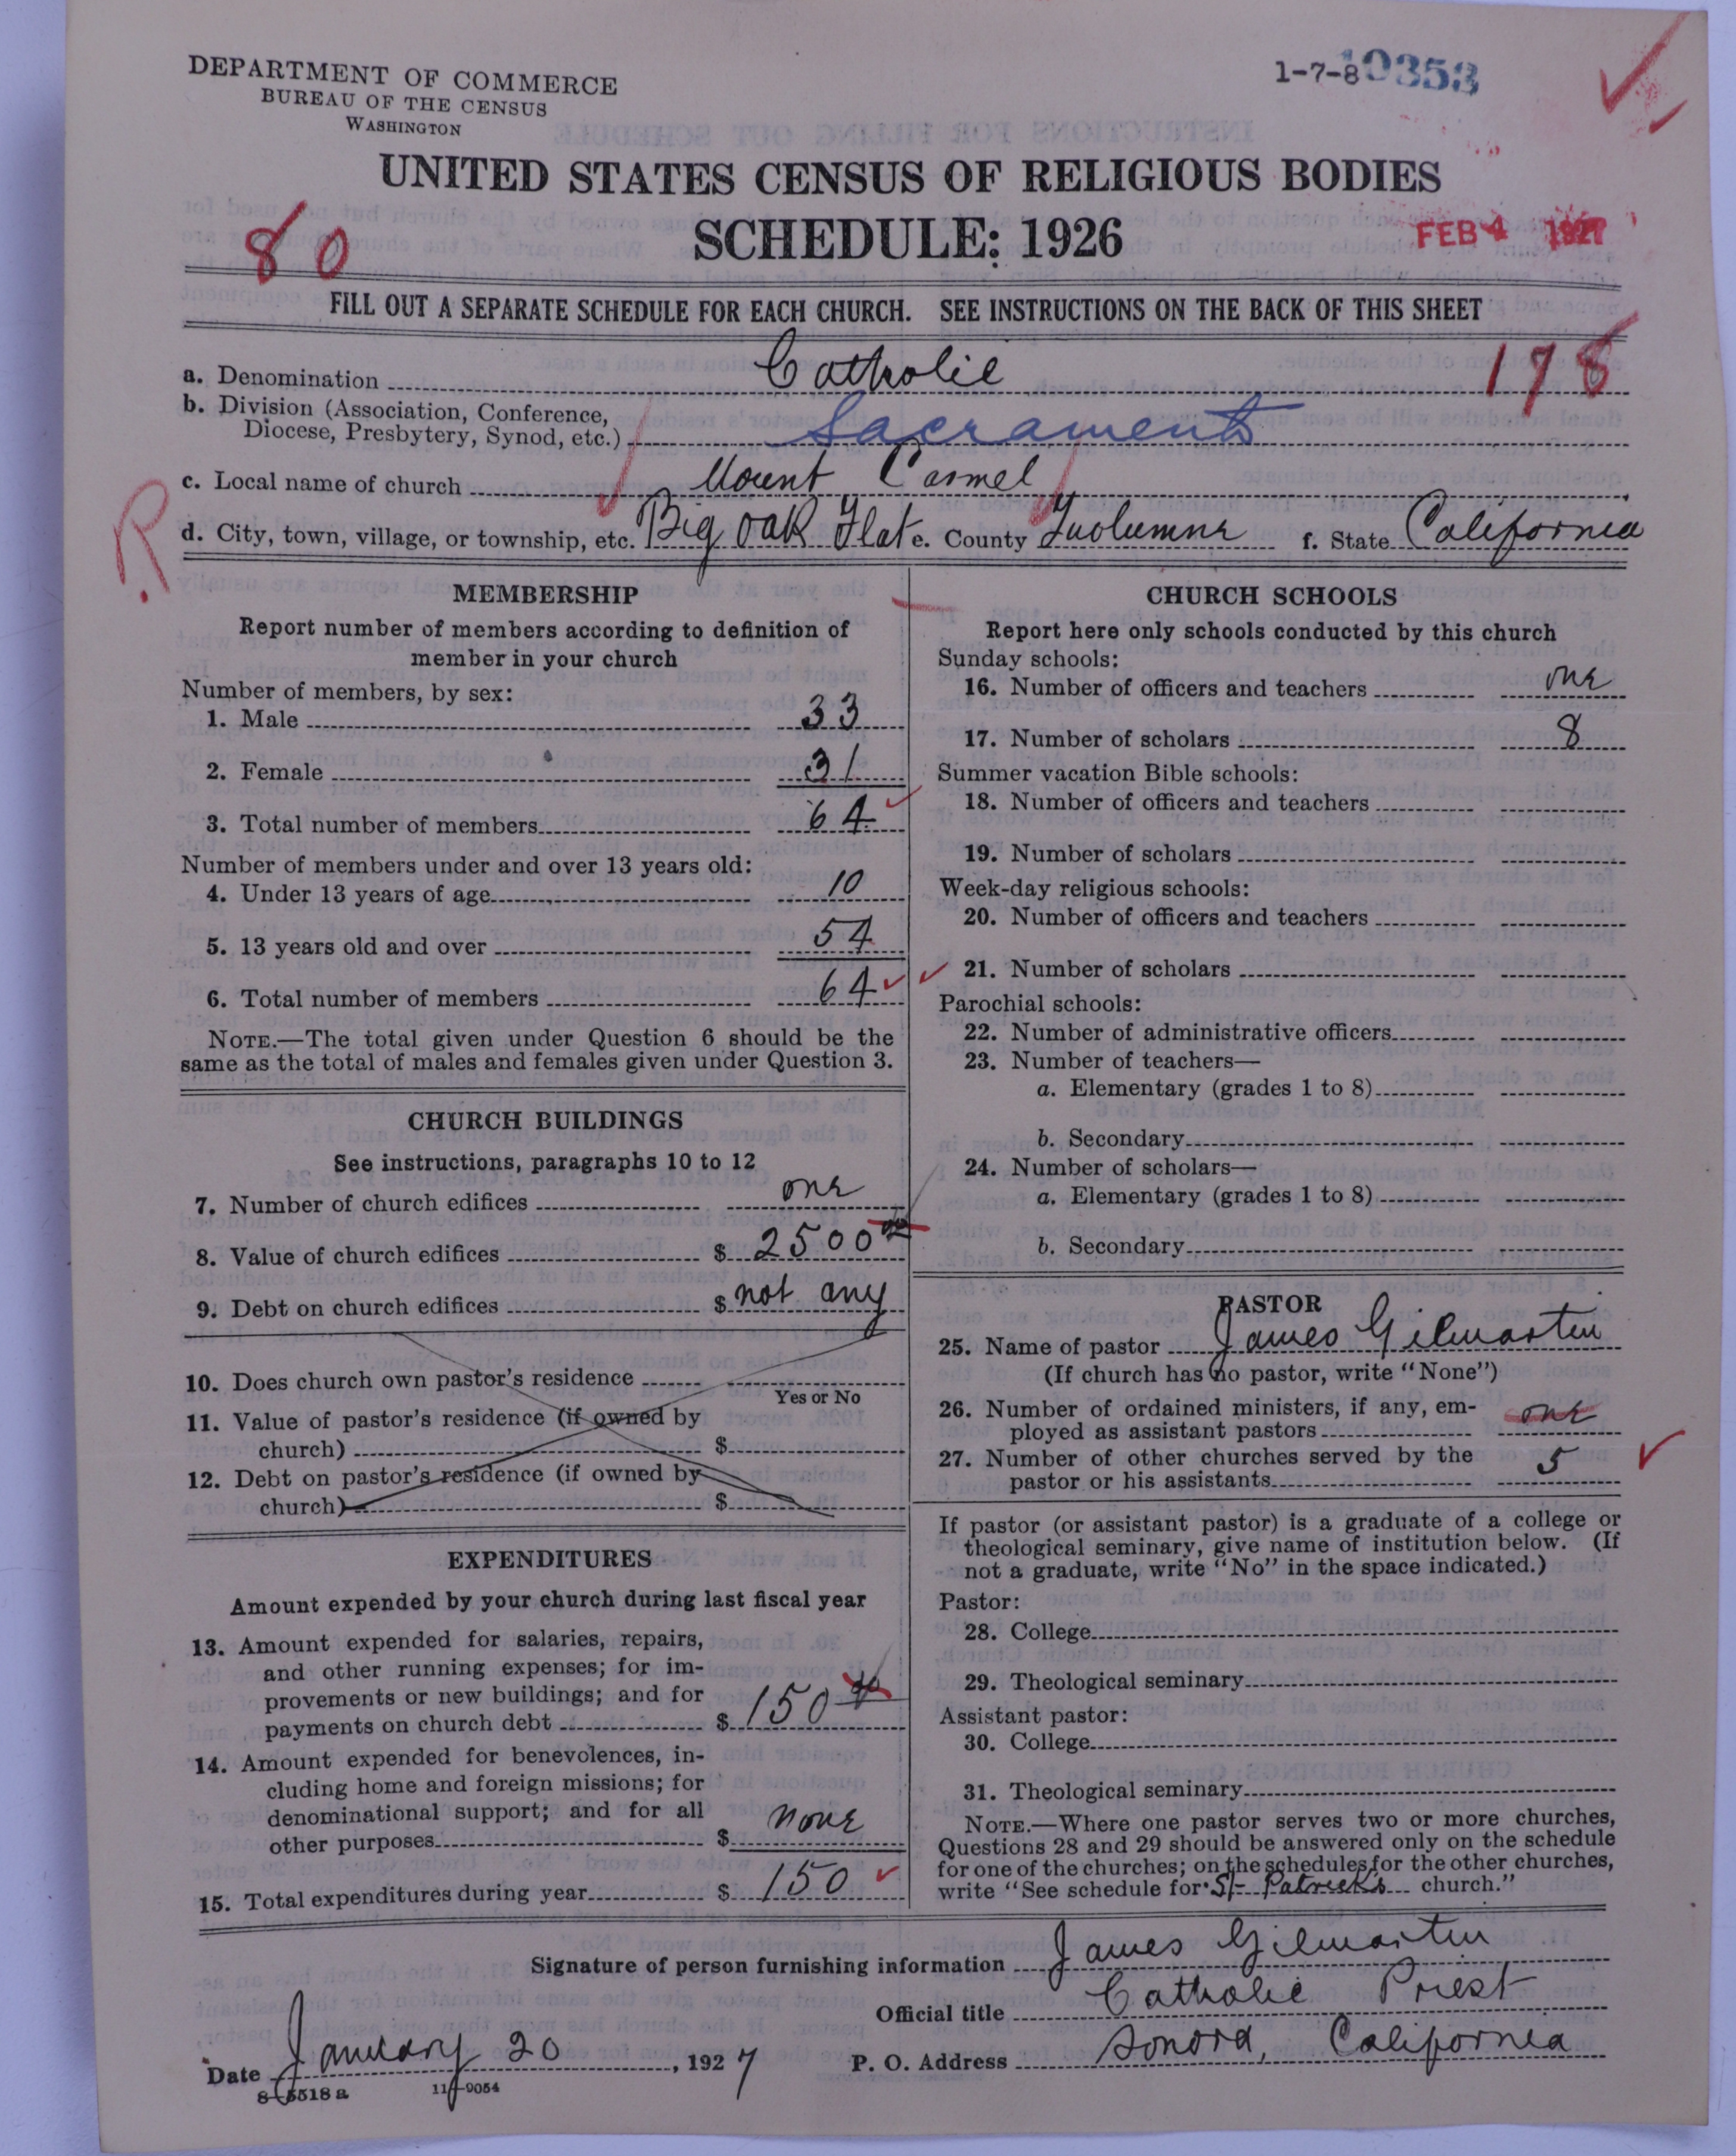 DEPARTMENT OF COMMERCE
BUREAU OF THE CENSUS
WASHINGTON
1-7-8 0353
UNITED STATES CENSUS OF RELIGIOUS BODIES
SCHEDULE: 1926
80
FEB 4 1927
FILL OUT A SEPARATE SCHEDULE FOR EACH CHURCH. SEE INSTRUCTIONS ON THE BACK OF THIS SHEET
a. Denomination Catholic
178
b. Division (Association, Conference,
Diocese, Presbytery, Synod, etc.) Sacramento
c. Local name of church Mount Carmel
R.
d. City, town, village, or township, etc. Big Oak Flat e. County Tuolumne f. State California
MEMBERSHIP
Report number of members according to definition of
member in your church
Number of members, by sex:
1. Male 33
2. Female 31
3. Total number of members 64
Number of members under and over 13 years old:
4. Under 13 years of age 10
5. 13 years old and over 54
6. Total number of members 64
NOTE.—The total given under Question 6 should be the
same as the total of males and females given under Question 3.
CHURCH BUILDINGS
See instructions, paragraphs 10 to 12
7. Number of church edifices one
8. Value of church edifices $ 2500
9. Debt on church edifices $ not any
10. Does church own pastor's residence
Yes or No
11. Value of pastor's residence (if owned by
church) $
12. Debt on pastor's residence (if owned by
church) $
EXPENDITURES
Amount expended by your church during last fiscal year
13. Amount expended for salaries, repairs,
and other running expenses; for im-
provements or new buildings; and for
payments on church debt $ 150
14. Amount expended for benevolences, in-
cluding home and foreign missions; for
denominational support; and for all
other purposes $ none
15. Total expenditures during year $ 150
CHURCH SCHOOLS
Report here only schools conducted by this church
Sunday schools:
16. Number of officers and teachers one
17. Number of scholars 8
Summer vacation Bible schools:
18. Number of officers and teachers
19. Number of scholars
Week-day religious schools:
20. Number of officers and teachers
21. Number of scholars
Parochial schools:
22. Number of administrative officers
23. Number of teachers—
a. Elementary (grades 1 to 8)
b. Secondary
24. Number of scholars—
a. Elementary (grades 1 to 8)
b. Secondary
PASTOR
25. Name of pastor James Gilmartin
(If church has no pastor, write "None")
26. Number of ordained ministers, if any, em-
ployed as assistant pastors one
27. Number of other churches served by the
pastor or his assistants 5
If pastor (or assistant pastor) is a graduate of a college or
theological seminary, give name of institution below. (If
not a graduate, write "No" in the space indicated.)
Pastor:
28. College
29. Theological seminary
Assistant pastor:
30. College
31. Theological seminary
NOTE.—Where one pastor serves two or more churches,
Questions 28 and 29 should be answered only on the schedule
for one of the churches; on the schedules for the other churches,
write "See schedule for St Patricks church."
Signature of person furnishing information James Gilmartin
Official title Catholic Priest
Date January 20, 1927 P. O. Address Sonora, California
8-5518 a 11-9054